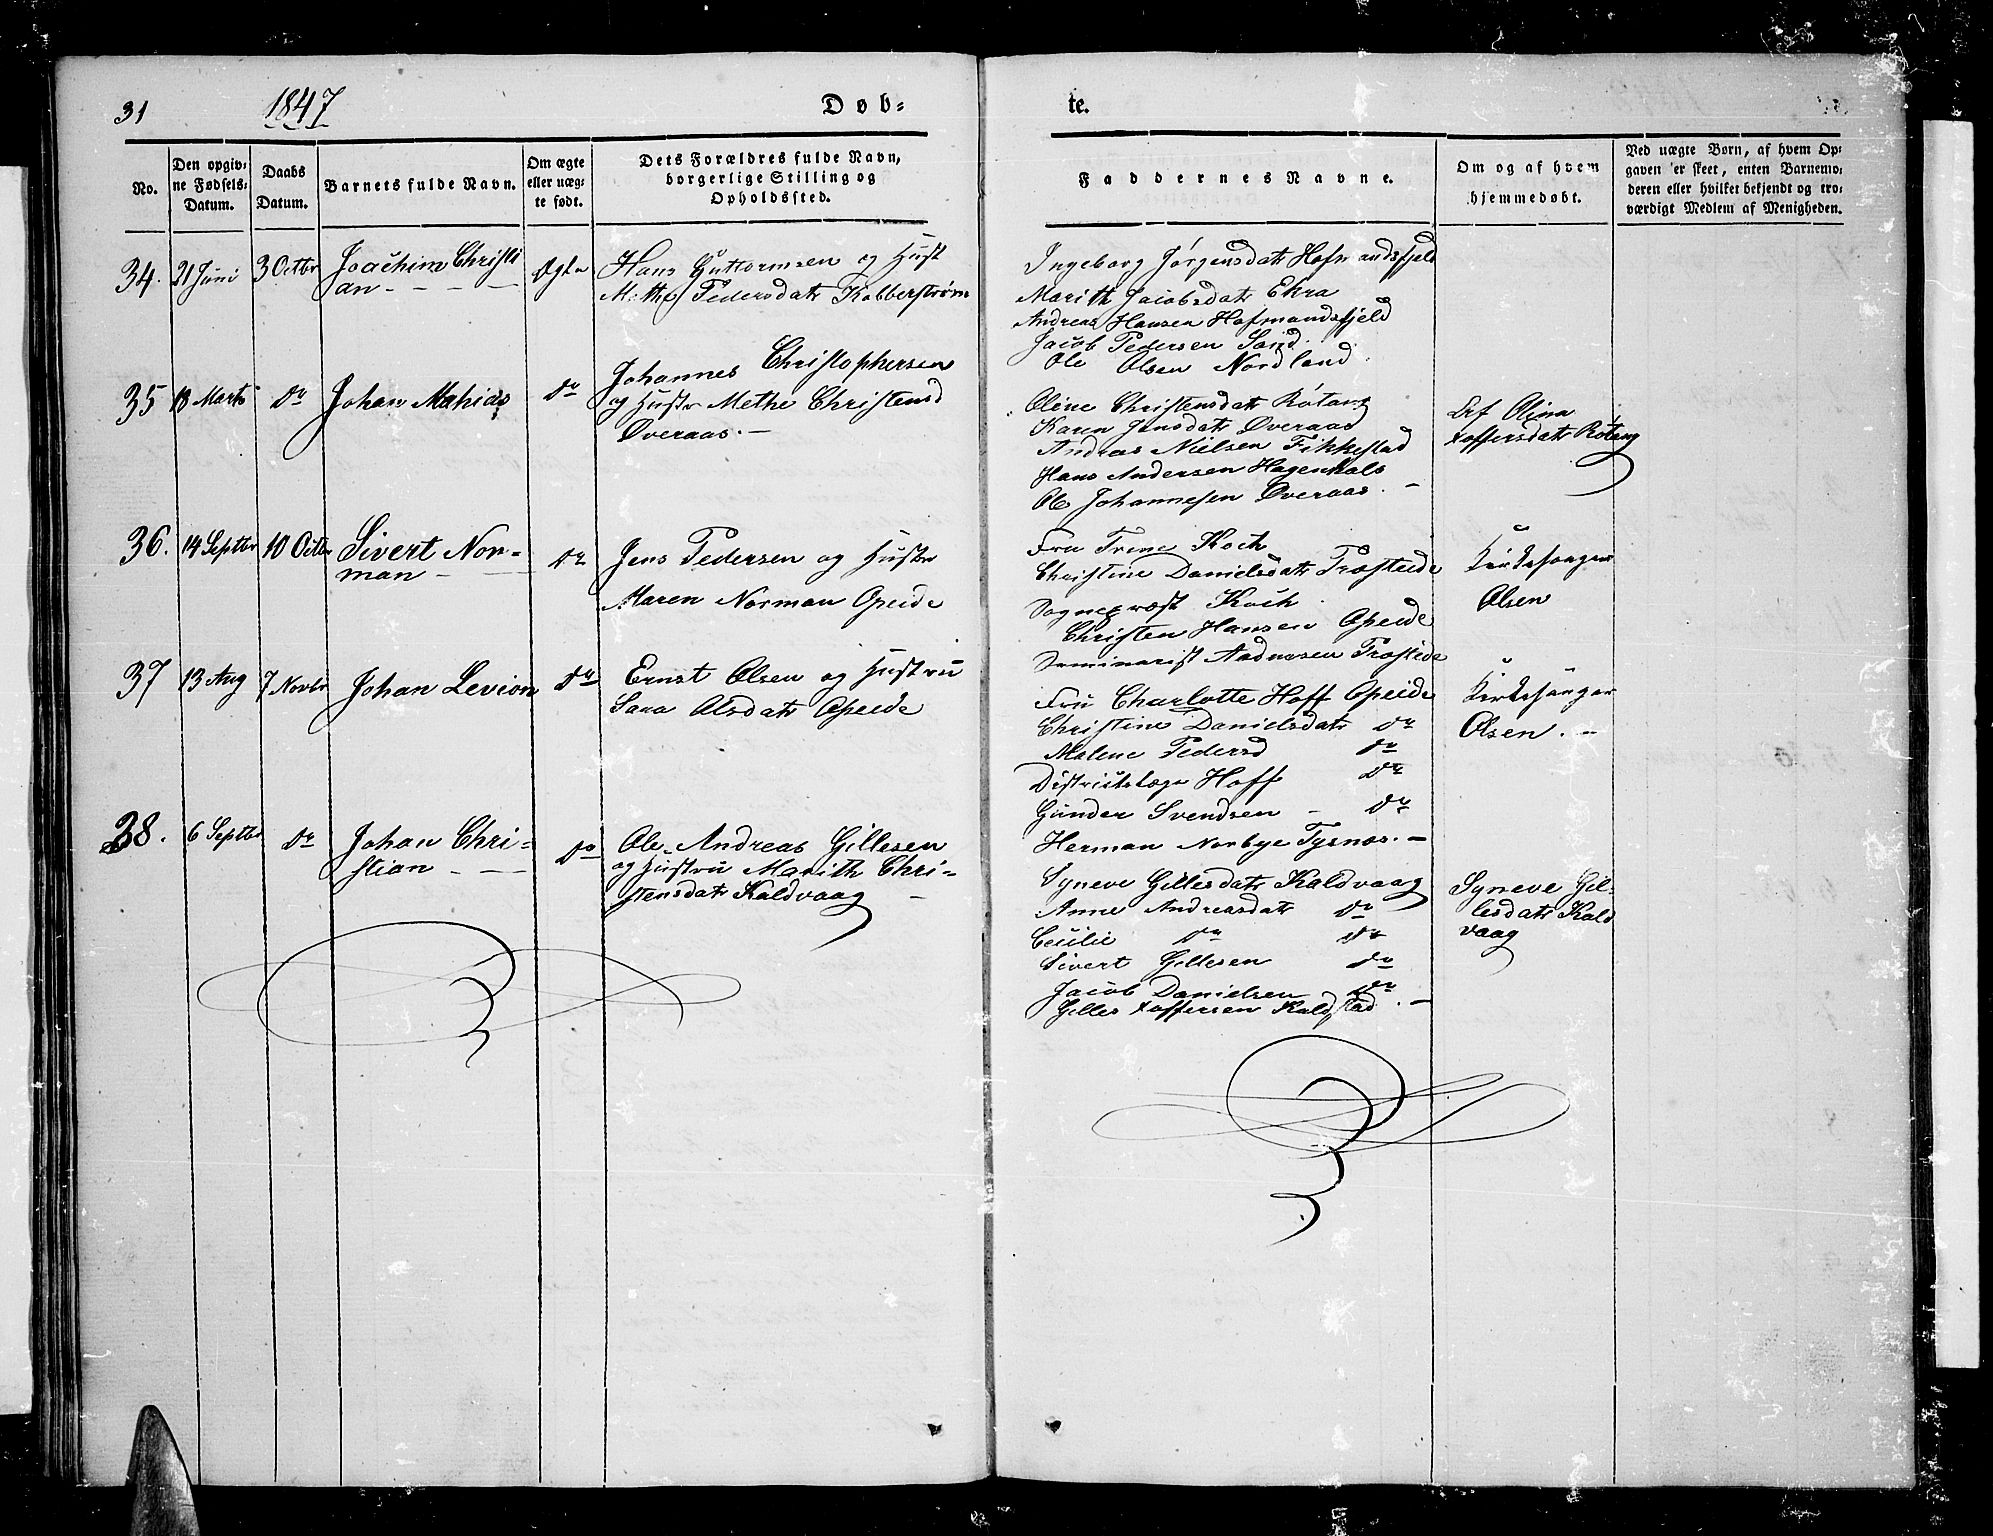 31
1847
Døb-
te.
No.
Den opgiv-
ne Fødsels-
Datum.
Daabs
Datum.
Barnets fulde Navn.
Om ægte
eller uæg-
te født.
Dets Forældres fulde Navn,
borgerlige Stilling og
Opholdssted.
Faddernes Navne.
Om og af hvem
hjemmedøbt.
Ved uægte Børn, af hvem Op-
gaven er skeet, enten Barnemo-
deren eller hvilket bekjendt og tro-
værdigt Medlem af Menigheden.
34. 21 Juni 3 Octbr Joachim Christi
an - - - -
Ægte
Hans Guttormsen og Hust
M: the Pedersdatr Kobberstrøm
Ingeborg Jørgensdatr Hofmandsfjeld
Marith Jacobsdatr Ekra
Andreas Hansen Hofmandsfjeld
Jacob Pedersen Sand.
Ole Olsen Nordland
35 13 Marts do Johan Mathias do
Johannes Christophersen
og Hustr Methe Christensd
Øveraas. -
Oline Christensdatr Røtang
Karen Jensdatr Øveraas
Andreas Nielsen Fikkestad
Hans Andersen Hagenhals
Ole Johannesen Øveraas. -
Af Olina
Xoffersdatr Røtang
36. 14 Septbr 10 Octbr Sivert Nor-
man - -
do
Jens Pedersen og Hustr
Maren Norman Opeide
Fru Trine Koch
Christine Danielsdatr Træsteide
Sognepræst Koch
Christen Hansen Opeide
Seminarist Aadnesen Træsteide
Kirkesanger
Olsen
37 13 Aug 7 Novbr Johan Levion do
Ernst Olsen og Hustru
Sara Olsdatr Opeide
Fru Charlotte Hoff Opeide
Christine Danielsdatr do
Malene Pedersd do
Districtslæge Hoff do
Gunder Svendsen - do
Herman Norbye Tysnæs. -
Kirkesanger
Olsen. -
38. 6 Septbr do Johan Chri-
stian - -
do
Ole Andreas Gillesen
og Hustru Marith Chri-
stensdatr Kaldvaag -
Syneve Gillesdatr Kaldvaag
Anne Andreasdatr do
Cecilie do do
Sivert Gillesen do
Jacob Danielsen do
Gilles Xoffersen Kaldstad. -
Syneve Gil-
lesdatr Kald
vaag